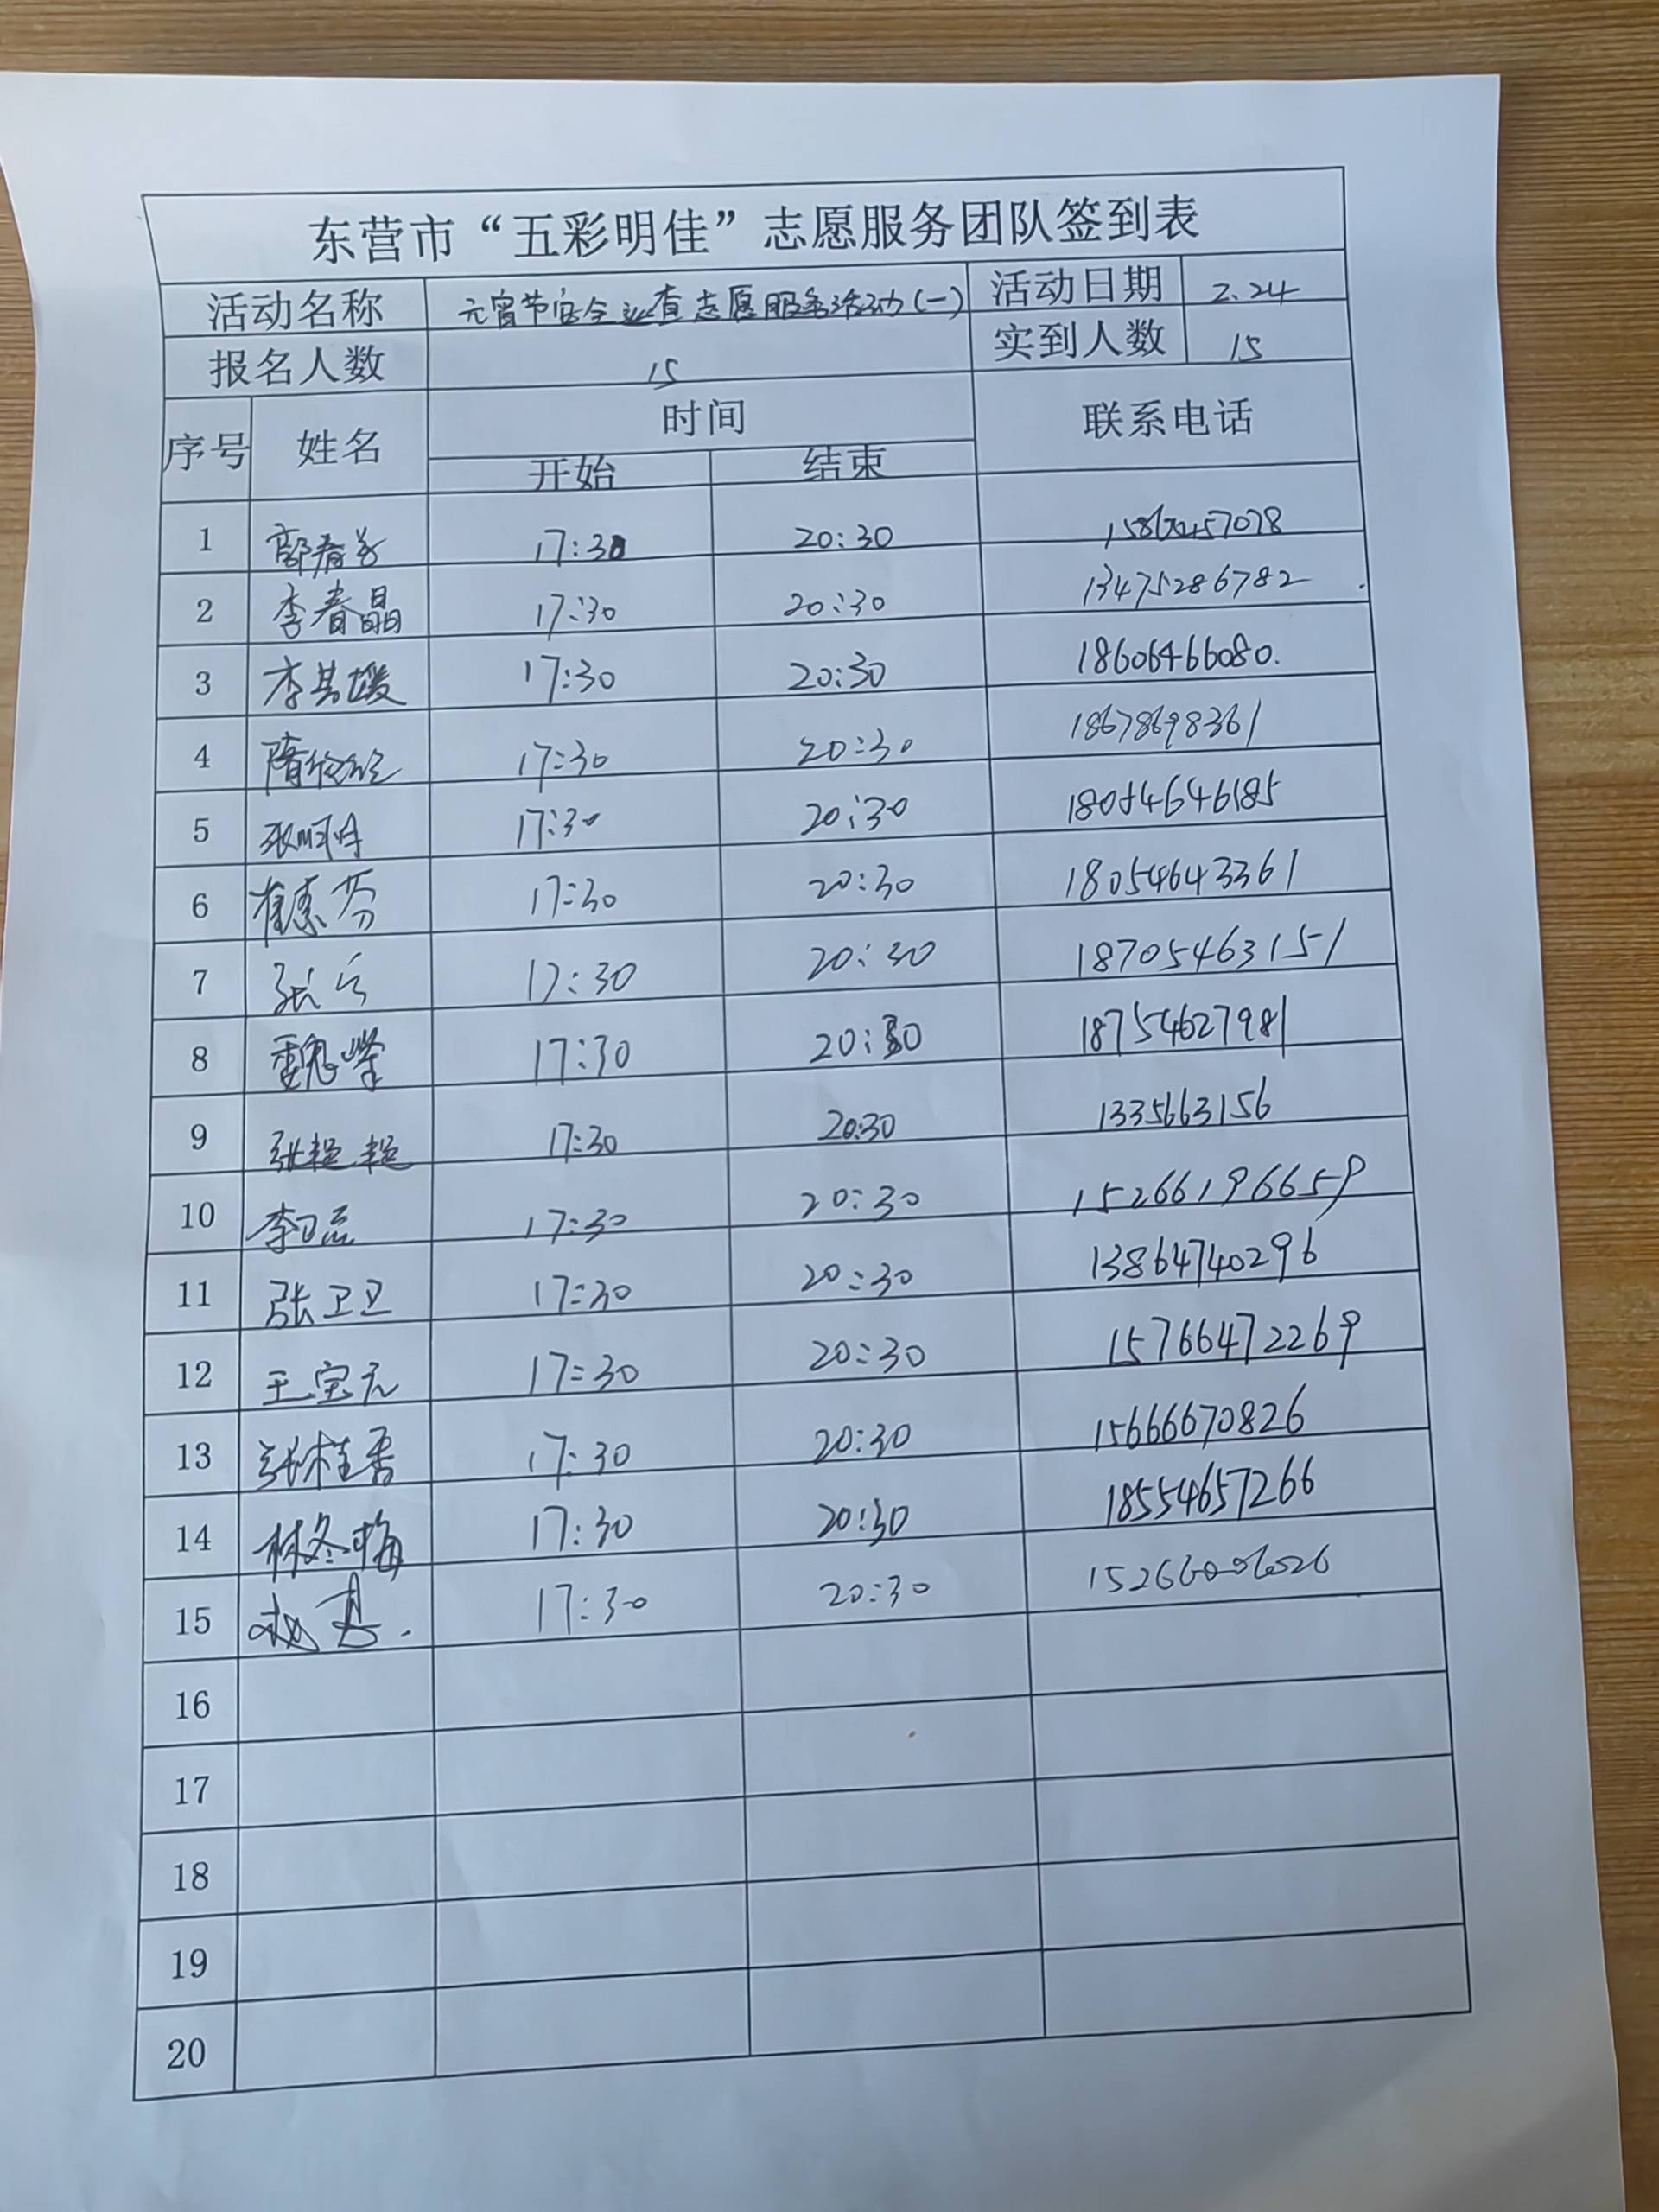 东营市“五彩明佳”志愿服务团队签到表
活动名称 元宵节安全巡查志愿服务活动(一) 活动日期 2.24
报名人数 15 实到人数 15
序号 姓名 时间 联系电话
开始 结束
1 17:30 20:30
2 李春晶 17:30 20:30 13475286782
3 李其媛 17:30 20:30 18606466080.
4 17:30 20:30 18678698361
5 17:30 20:30 18054646185
6 崔惠芬 17:30 20:30 18054643361
7 17:30 20:30 18705463151
8 魏荣 17:30 20:30 18754627981
9 张超超 17:30 20:30 1335663156
10 17:30 20:30 15266196659
11 张卫卫 17:30 20:30 13864740296
12 王宝元 17:30 20:30 15766472269
13 张桂香 17:30 20:30 15666670826
14 林冬梅 17:30 20:30 18554657266
15 17:30 20:30 15266006026
16
17
18
19
20